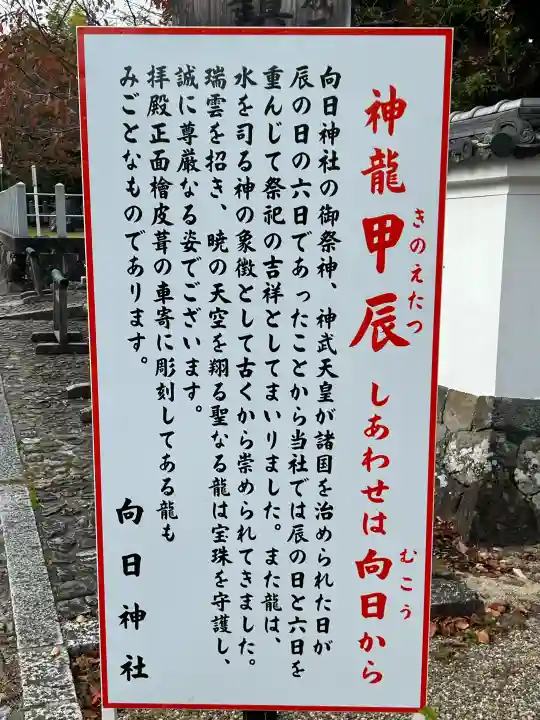 神龍甲辰 しあわせは向日から
きのえたつ
むこう
向日神社の御祭神、神武天皇が諸国を治められた日が
辰の日の六日であったことから当社では辰の日と六日を
重んじて祭祀の吉祥としてまいりました。また龍は、
水を司る神の象徴として古くから崇められてきました。
瑞雲を招き、暁の天空を翔る聖なる龍は宝珠を守護し、
誠に尊厳なる姿でございます。
拝殿正面檜皮葺の車寄に彫刻してある龍も
みごとなものであります。
向日神社